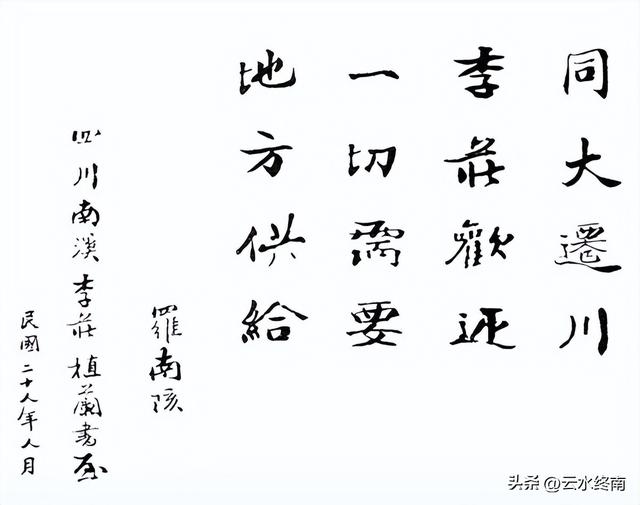 同大遷川
李莊歡迎
一切需要
地方供給
羅南陔
四川南溪李莊植蘭書屋
民國二十八年八月
头条 @云水终南